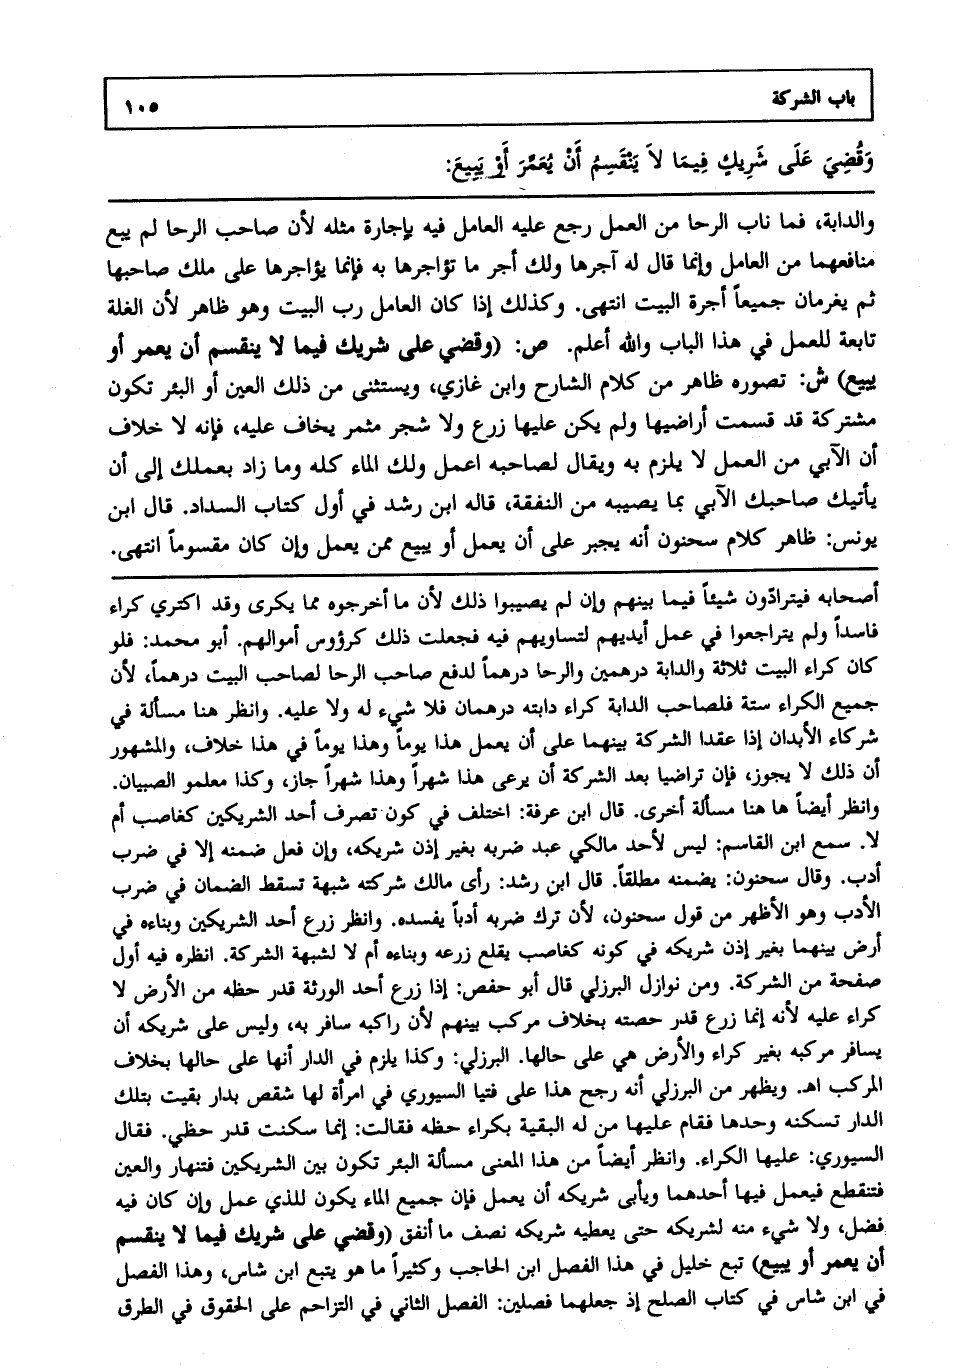 باب الشركة ١٠٥
وَقُضِيَ عَلَى شَرِيكٍ فِيمَا لاَ يَنْقَسِمُ أَنْ يُعَمِّرَ أَوْ يَبِيعَ:
والدابة، فما ناب الرحا من العمل رجع عليه العامل فيه بإجارة مثله لأن صاحب الرحا لم يبع
منافعهما من العامل وإنما قال له آجرها ولك أجر ما تؤاجرها به فإنما يؤاجرها على ملك صاحبها
ثم يغرمان جميعاً أجرة البيت انتهى. وكذلك إذا كان العامل رب البيت وهو ظاهر لأن الغلة
تابعة للعمل في هذا الباب والله أعلم. ص: (وقضي على شريك فيما لا ينقسم أن يعمر أو
يبيع) ش: تصوره ظاهر من كلام الشارح وابن غازي، ويستثنى من ذلك العين أو البئر تكون
مشتركة قد قسمت أراضيها ولم يكن عليها زرع ولا شجر مثمر يخاف عليه، فإنه لا خلاف
أن الآبي من العمل لا يلزم به ويقال لصاحبه اعمل ولك الماء كله وما زاد بعملك إلى أن
يأتيك صاحبك الآبي بما يصيبه من النفقة، قاله ابن رشد في أول كتاب السداد. قال ابن
يونس: ظاهر كلام سحنون أنه يجبر على أن يعمل أو يبيع ممن يعمل وإن كان مقسوماً انتهى.
أصحابه فيترادّون شيئاً فيما بينهم وإن لم يصيبوا ذلك لأن ما أخرجوه مما يكرى وقد اكتري كراء
فاسداً ولم يتراجعوا في عمل أيديهم لتساويهم فيه فجعلت ذلك كرؤوس أموالهم. أبو محمد: فلو
كان كراء البيت ثلاثة والدابة درهمين والرحا درهماً لدفع صاحب الرحا لصاحب البيت درهماً، لأن
جميع الكراء ستة فلصاحب الدابة كراء دابته درهمان فلا شيء له ولا عليه. وانظر هنا مسألة في
شركاء الأبدان إذا عقدا الشركة بينهما على أن يعمل هذا يوماً وهذا يوماً في هذا خلاف، والمشهور
أن ذلك لا يجوز، فإن تراضيا بعد الشركة أن يرعى هذا شهراً وهذا شهراً جاز، وكذا معلمو الصبيان.
وانظر أيضاً ها هنا مسألة أخرى. قال ابن عرفة: اختلف في كون تصرف أحد الشريكين كغاصب أم
لا. سمع ابن القاسم: ليس لأحد مالكي عبد ضربه بغير إذن شريكه، وإن فعل ضمنه إلا في ضرب
أدب. وقال سحنون: يضمنه مطلقاً. قال ابن رشد: رأى مالك شركته شبهة تسقط الضمان في ضرب
الأدب وهو الأظهر من قول سحنون، لأن ترك ضربه أدباً يفسده. وانظر زرع أحد الشريكين وبناءه في
أرض بينهما بغير إذن شريكه في كونه كغاصب يقلع زرعه وبناءه أم لا لشبهة الشركة. انظره فيه أول
صفحة من الشركة. ومن نوازل البرزلي قال أبو حفص: إذا زرع أحد الورثة قدر حظه من الأرض لا
كراء عليه لأنه إنما زرع قدر حصته بخلاف مركب بينهم لأن راكبه سافر به، وليس على شريكه أن
يسافر مركبه بغير كراء والأرض هي على حالها. البرزلي: وكذا يلزم في الدار أنها على حالها بخلاف
المركب اهـ. ويظهر من البرزلي أنه رجح هذا على فتيا السيوري في امرأة لها شقص بدار بقيت بتلك
الدار تسكنه وحدها فقام عليها من له البقية بكراء حظه فقالت: إنما سكنت قدر حظي. فقال
السيوري: عليها الكراء. وانظر أيضاً من هذا المعنى مسألة البئر تكون بين الشريكين فتنهار والعين
فتنقطع فيعمل فيها أحدهما ويأبى شريكه أن يعمل فإن جميع الماء يكون للذي عمل وإن كان فيه
فضل، ولا شيء منه لشريكه حتى يعطيه شريكه نصف ما أنفق (وقضي على شريك فيما لا ينقسم
أن يعمر أو يبيع) تبع خليل في هذا الفصل ابن الحاجب وكثيراً ما هو يتبع ابن شاس، وهذا الفصل
في ابن شاس في كتاب الصلح إذ جعلهما فصلين: الفصل الثاني في التزاحم على الحقوق في الطرق